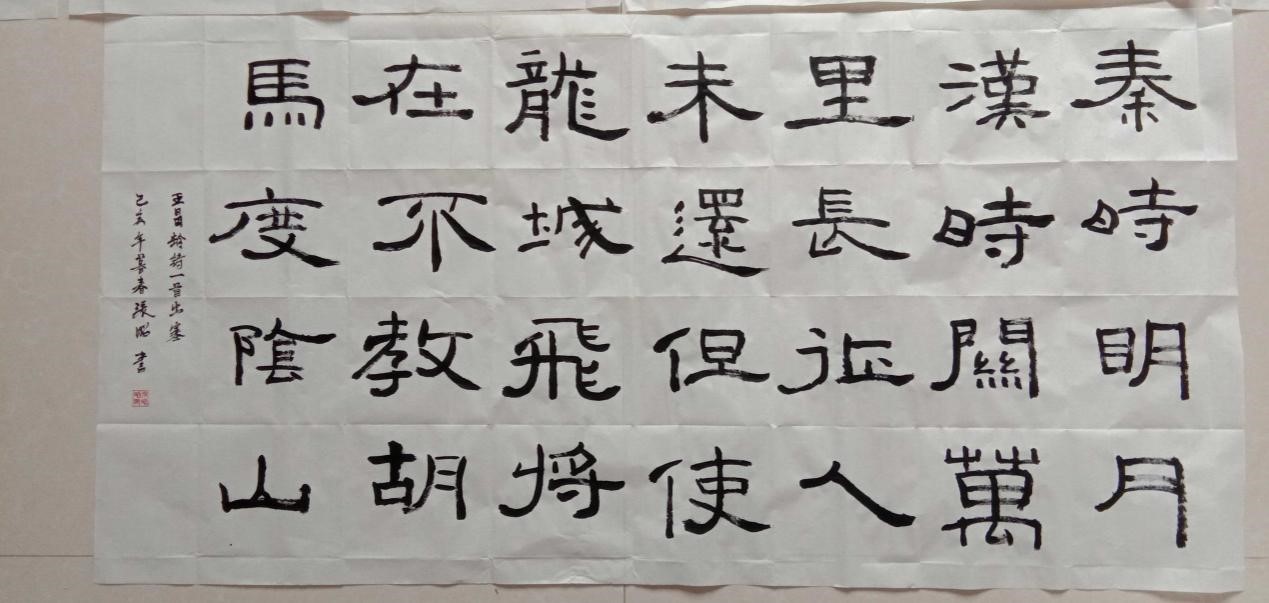 秦時明月
漢時關萬
里長征人
未還但使
龍城飛將
在不教胡
馬度陰山
王昌齡詩一首出塞
己亥年暮春張昭書